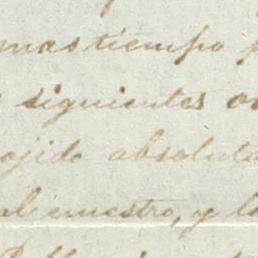 mas tiempo p
siguientes or
ojido absoluta
al nuestro, y la